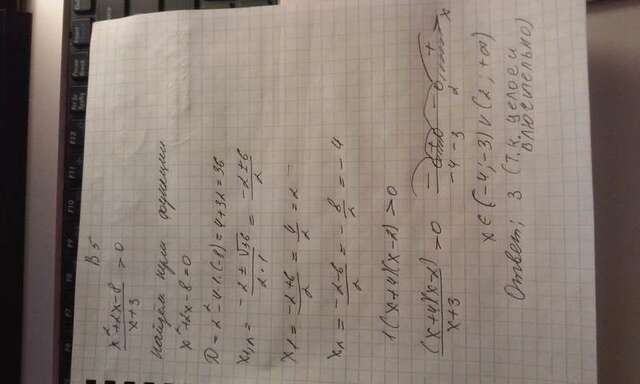 В5
x²+2x-8/x+3 > 0
Найдём нули функции
x²+2x-8=0
D = 2²-4·1·(-8)=4+32=36
x₁,₂ = -2±√36/2·1 = -2±6/2
x₁ = -2+6/2 = 4/2 = 2
x₂ = -2-6/2 = -8/2 = -4
1(x+4)(x-2)>0
(x+4)(x-2)/x+3 > 0 - + - + x
-4 -3 2
x∈(-4;-3)∪(2;+∞)
Ответ: 3 (т.к. целое и
включительно)